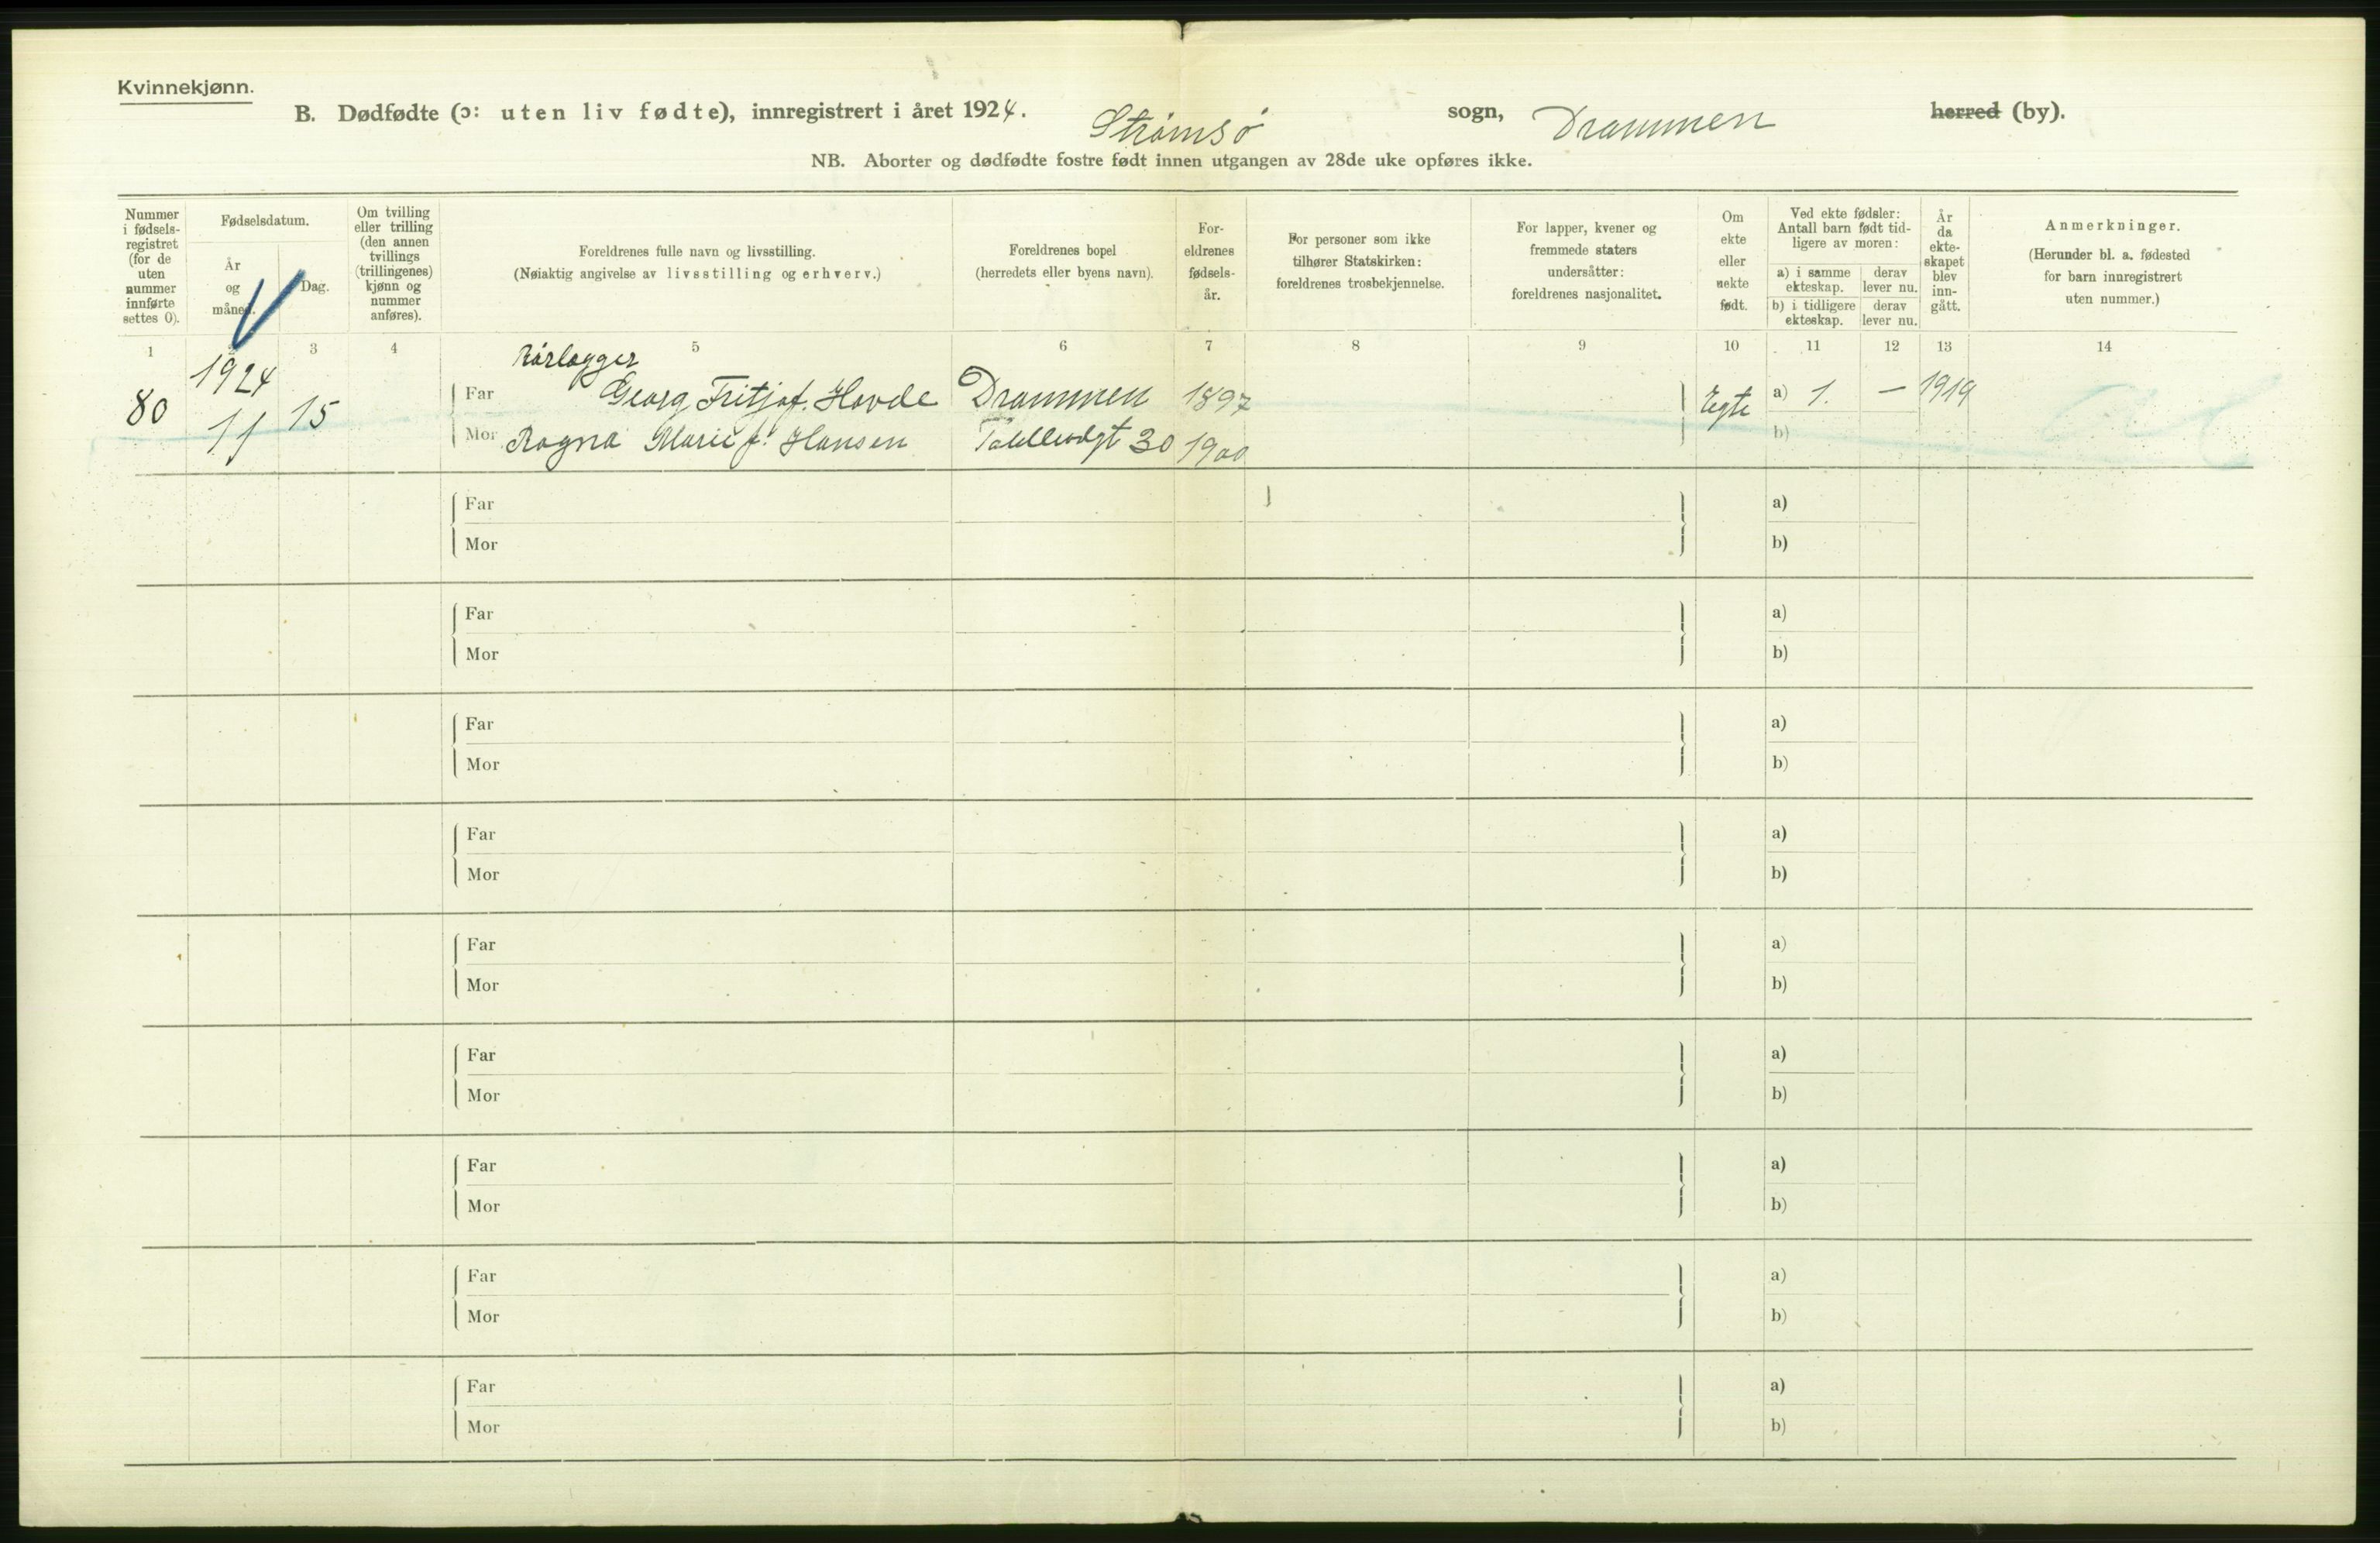 Kvinnekjønn.
B. Dødfødte (ɔ: uten liv fødte), innregistrert i året 1924. Strømsø sogn, Drammen herred (by).
NB. Aborter og dødfødte fostre født innen utgangen av 28de uke opføres ikke.
Nummer i fødsels-registret (for de uten nummer innførte settes 0).
Fødselsdatum.
År og måned.
Dag.
Om tvilling eller trilling (den annen tvillings (trillingenes) kjønn og nummer anføres).
Foreldrenes fulle navn og livsstilling.
(Nøiaktig angivelse av livsstilling og erhverv.)
Foreldrenes bopel
(herredets eller byens navn).
For-eldrenes fødsels-år.
For personer som ikke tilhører Statskirken: foreldrenes trosbekjennelse.
For lapper, kvener og fremmede staters undersåtter: foreldrenes nasjonalitet.
Om ekte eller uekte født.
Ved ekte fødsler: Antall barn født tid-ligere av moren:
a) i samme ekteskap.
derav lever nu.
b) i tidligere ekteskap.
derav lever nu.
År da ekte-skapet blev inn-gått.
Anmerkninger.
(Herunder bl. a. fødested for barn innregistrert uten nummer.)
1 3 4 5 6 7 8 9 10 11 12 13 14
Rørlegger
80 1924 11 15 Far Georg Fritjof. Hovde Drammen 1897 Egte a) 1. — 1919
Mor Ragna Marie f. Hansen 30 1900 b)
Far a)
Mor b)
Far a)
Mor b)
Far a)
Mor b)
Far a)
Mor b)
Far a)
Mor b)
Far a)
Mor b)
Far a)
Mor b)
Far a)
Mor b)
Far a)
Mor b)